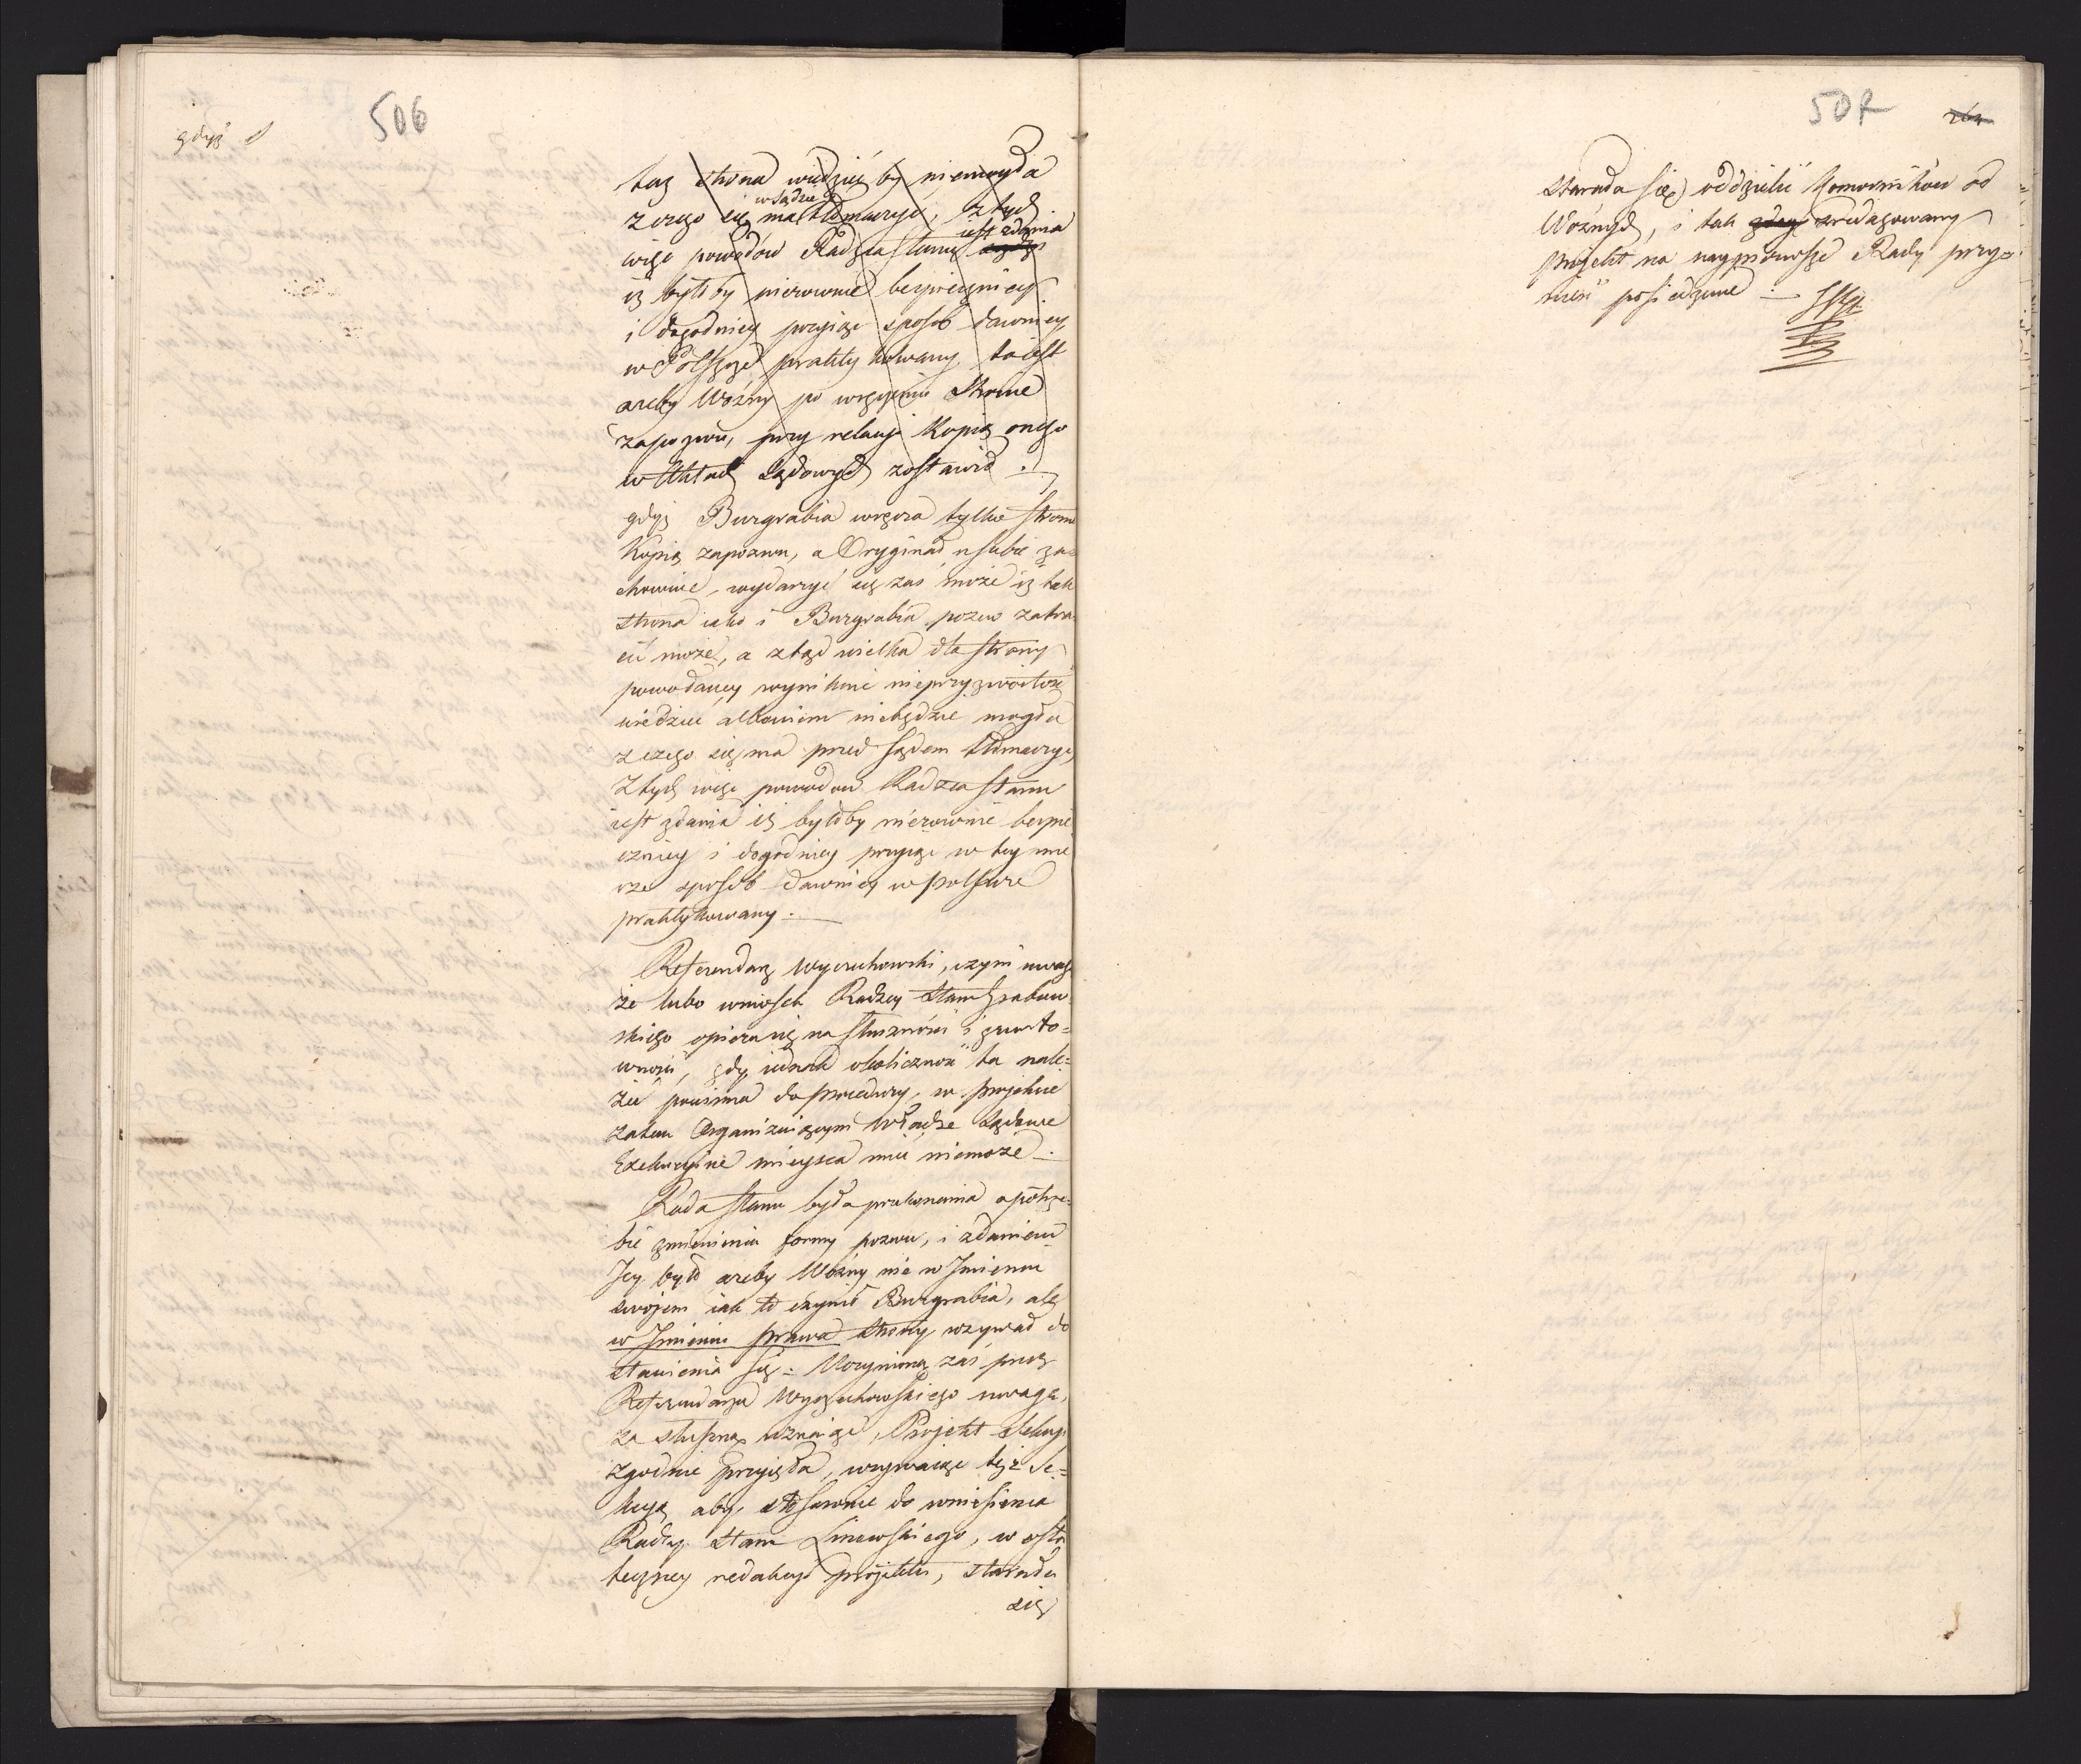 506
gdyż
taż strona wiedzieć by niemogła
z czego się ma w Sądzie tłómaczyć, z tych
więc powodów Radzca Stanu iest zdania
iż byłoby nierownie bezpieczniey
i dogodniey przyiąć sposób dawniey
w Polszcze praktykowany to iest
ażeby Woźny po wręczeniu Stronie
zapozwu, przy relacyi Kopią onego
w Aktach Sądowych zostawił.
gdyż Burgrabia wręcza tylko stronie
Kopią zapozwu, a Oryginał u siebie za-
chowuie, wydarzyć się zaś może iż tak
strona iako i Burgrabia pozew zatra-
cić może, a ztąd wielka dla strony
powodaiącey wyniknie nieprzyzwoitość
wiedzieć albowiem niebędzie mogła
z czego się ma przed Sądem tłómaczyć,
Z tych więc powodow Radzca Stanu
iest zdania iż byłoby nierownie bespie
czniey i dogodniey przyiąć w tey mie
rze sposób dawniey w Polszcze
praktykowany.
Referendarz Wyczechowski, czyni uwagę
że lubo wniosek Radzcy Stanu Grabow
skiego opiera się na słuszności i grunto=
wności, gdy iednak okoliczność ta nale=
żeć powinna do procedury, w projekcie
zatem Organizuiącym Władze Sądowe
Exekucyine mieysca mieć niemoże.
Rada Stanu była przekonania o potrze=
bie zmienienia formy pozwu, i zdaniem
Jey było ażeby Woźny nie w Jmieniu
swojem iak to czynił Burgrabia, ale
w Jmieniu prawa Strony wzywał do
stawienia się. Uczynioną zaś przez
Referendarza Wyczechowskiego uwagę,
za słuszną uznaiąc, Projekt Sekcyi
zgodnie przyięła, wzywaiąc też Se=
kcyą aby, stosownie do wniesienia
Radzcy Stanu Linowskiego, w osta
teczney redakcyi projektu, starała
się
507
264
starała się oddzielić Komorników od
Woźnych, i tak zredagowany
projekt na naypierwsze Rady przy=
nieść posiedzenie.